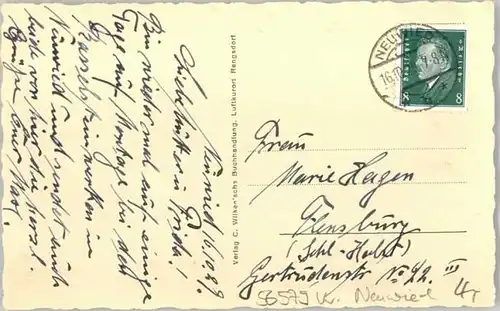 Neuwied 16/10 29.
Liebe Mutter u. Frida!
Bin wieder mal auf einige
Tage auf Montage bei den
Rasselstein werken in
Neuwied und sendet euch
von hier die herzl.
Grüße euer
Verlag C. Wilken'sche Buchhandlung, Luftkurort Rengsdorf
NEUWIED
16.10.
DEUTSCHES REICH
8 8
Frau
Marie Hagen
Flensburg
(Schl-Holst)
Gertrudenstr No 22 III
56579 K. Neuwied